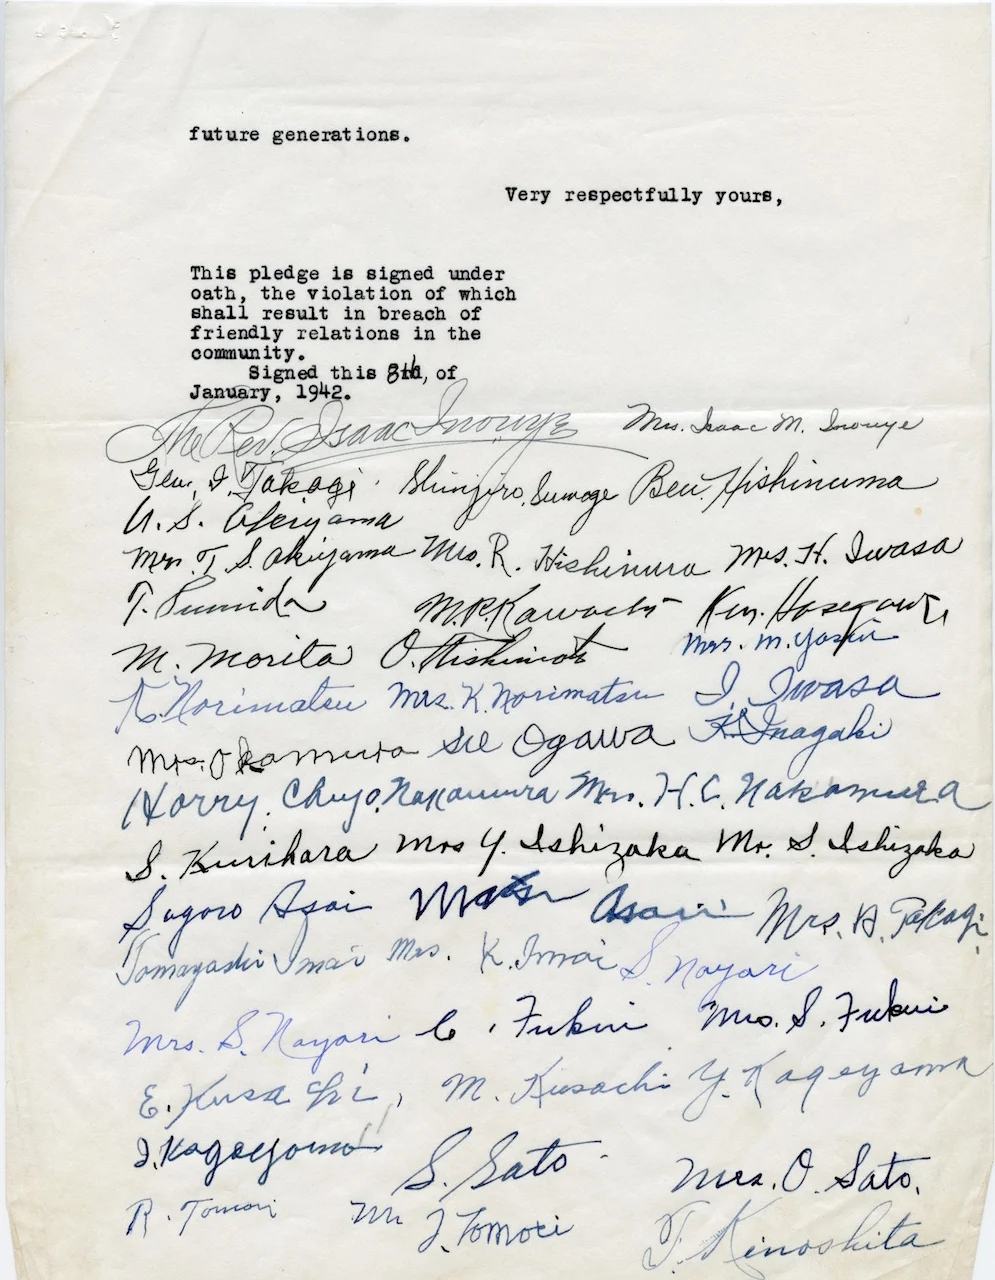 future generations.
Very respectfully yours,
This pledge is signed under
oath, the violation of which
shall result in breach of
friendly relations in the
community.
Signed this 8th, of
January, 1942.
The Rev. Isaac Inouye Mrs. Isaac M. Inouye
Geo. I. Takagi Shinjiro Sumoge Ben. Hishinuma
U. S. Akiyama
Mrs. T. S. Akiyama Mrs. R. Hishinuma Mrs. H. Iwasa
T. Sumida M. R. Kawachi Ken. Hasegawa
M. Morita O. Mrs. M.
K. Norimatsu Mrs. K. Norimatsu I. Iwasa
Mrs. Okamura Sue Ogawa K. Inagaki
Harry. Chuyo. Nakamura Mrs. H. C. Nakamura
S. Kurihara Mrs Y. Ishizaka Mr. S. Ishizaka
Sagoro Asai Asai Mrs. A. Takagi
Tomayashi Imai Mrs. K. Imai S. Nayori
Mrs. S. Nayori C. Fukui Mrs. S. Fukui
E. Kusachi, M. Kusachi Y. Kageyama
I. Kageyama S. Sato Mrs. O. Sato.
R. Tomori J. Tomori T. Kinoshita